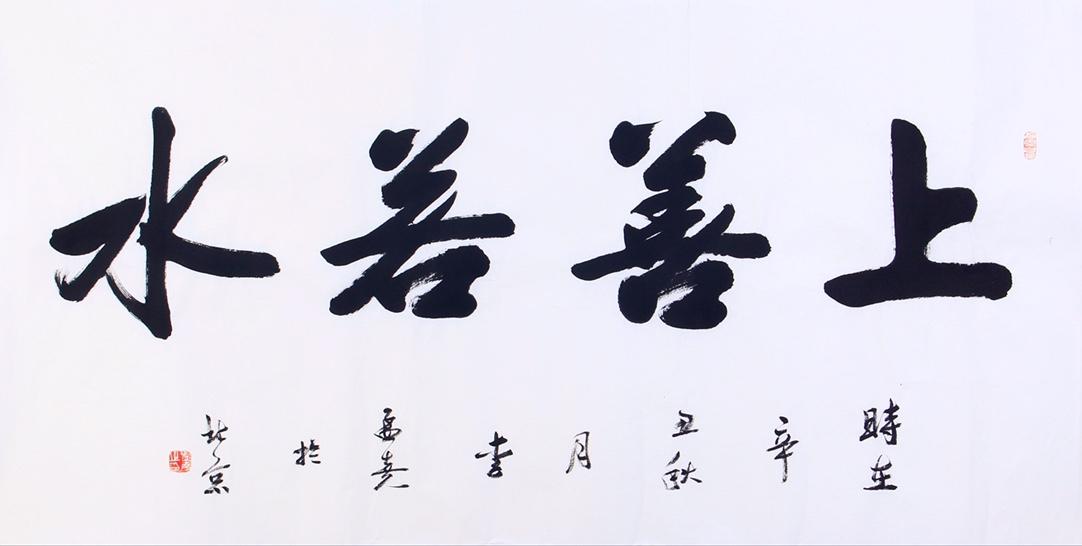 上善若水
時在辛丑秋月李於北京